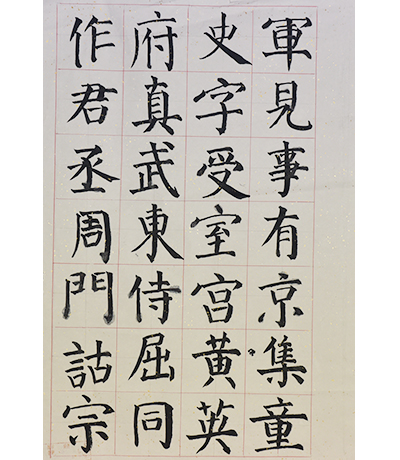 軍見事有京集童
史字受室宮黃英
府真武東侍屈同
作君丞周門詁宗